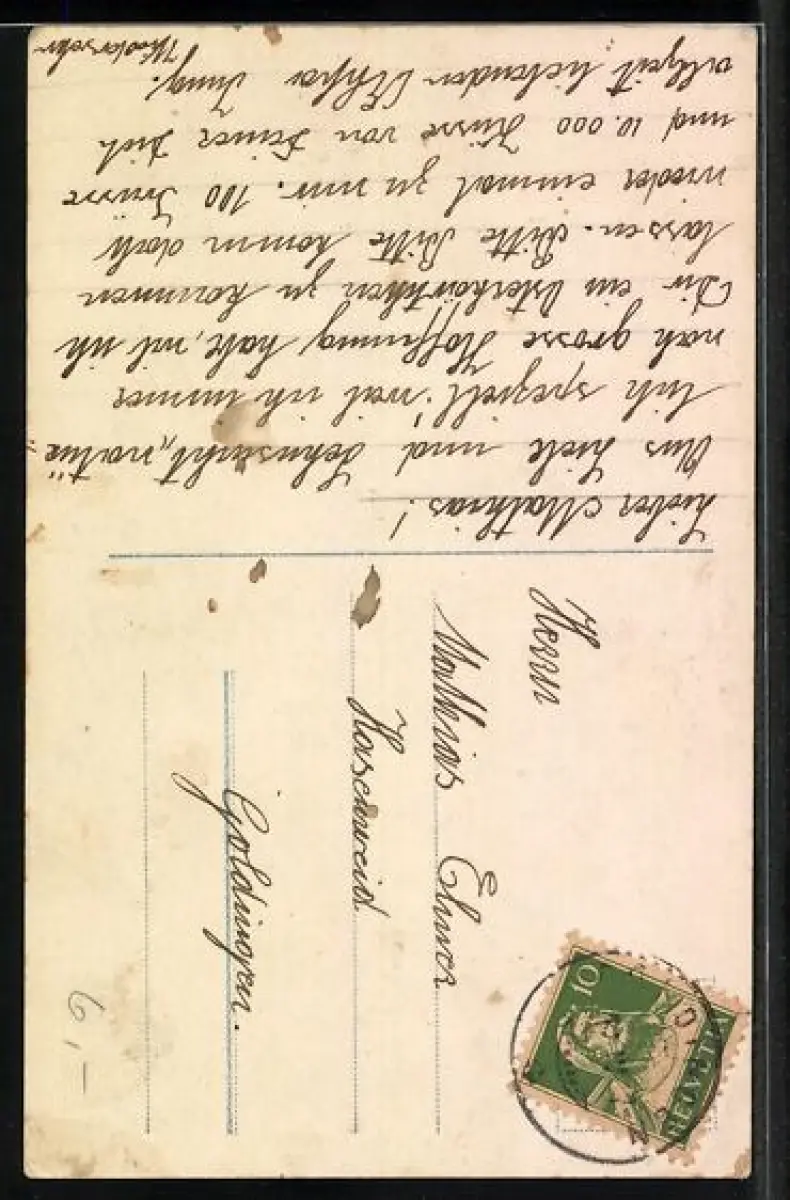 Lieber Mathias!
Aus Liebe und Sehnsucht, natür
lich speziell, weil ich immer
noch grosse Hoffnung habe, will ich
Dir ein Osterkärtchen zu kommen
lassen. Bitte Bitte komm doch
wieder einmal zu mir. 100 Grüsse
und 10.000 Küsse von Deiner Dich
allzeit liebenden
Herrn
Mathias Elmer
Goldingen.
10
HELVETIA
6,—